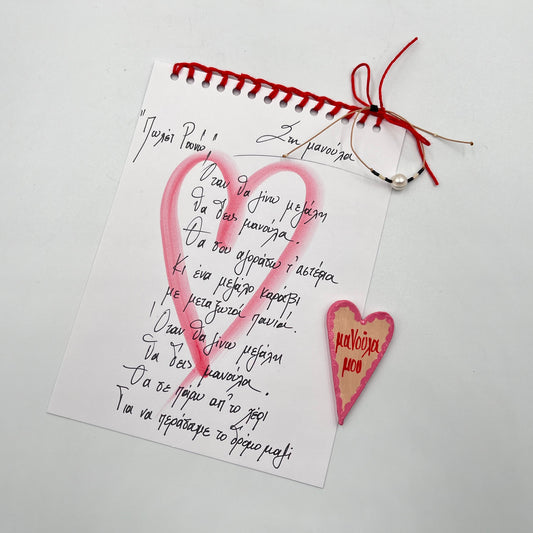 "Πωλέτ Ρουνώ"
Στη μανούλα
Όταν θα γίνω μεγάλη
θα δεις μανούλα.
Θα σου αγοράσω τ' αστέρια
Κι ένα μεγάλο καράβι
με μεταξωτά πανιά.
Όταν θα γίνω μεγάλη
θα δεις μανούλα.
Θα σε πάρω απ' το χέρι
Για να περάσαμε το δρόμο μαζί
μαΝούλα
μου